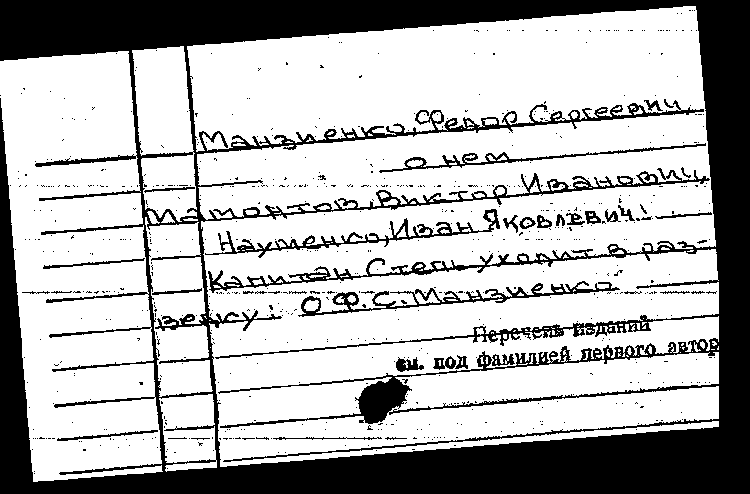 Манзиенко, Федор Сергеевич,
о нем
Мамонтов, Виктор Иванович,
Науменко, Иван Яковлевич:
Капитан Степь уходит в раз-
ведку: О Ф.С. Манзиенко
Перечень изданий
см. под фамилией первого автор